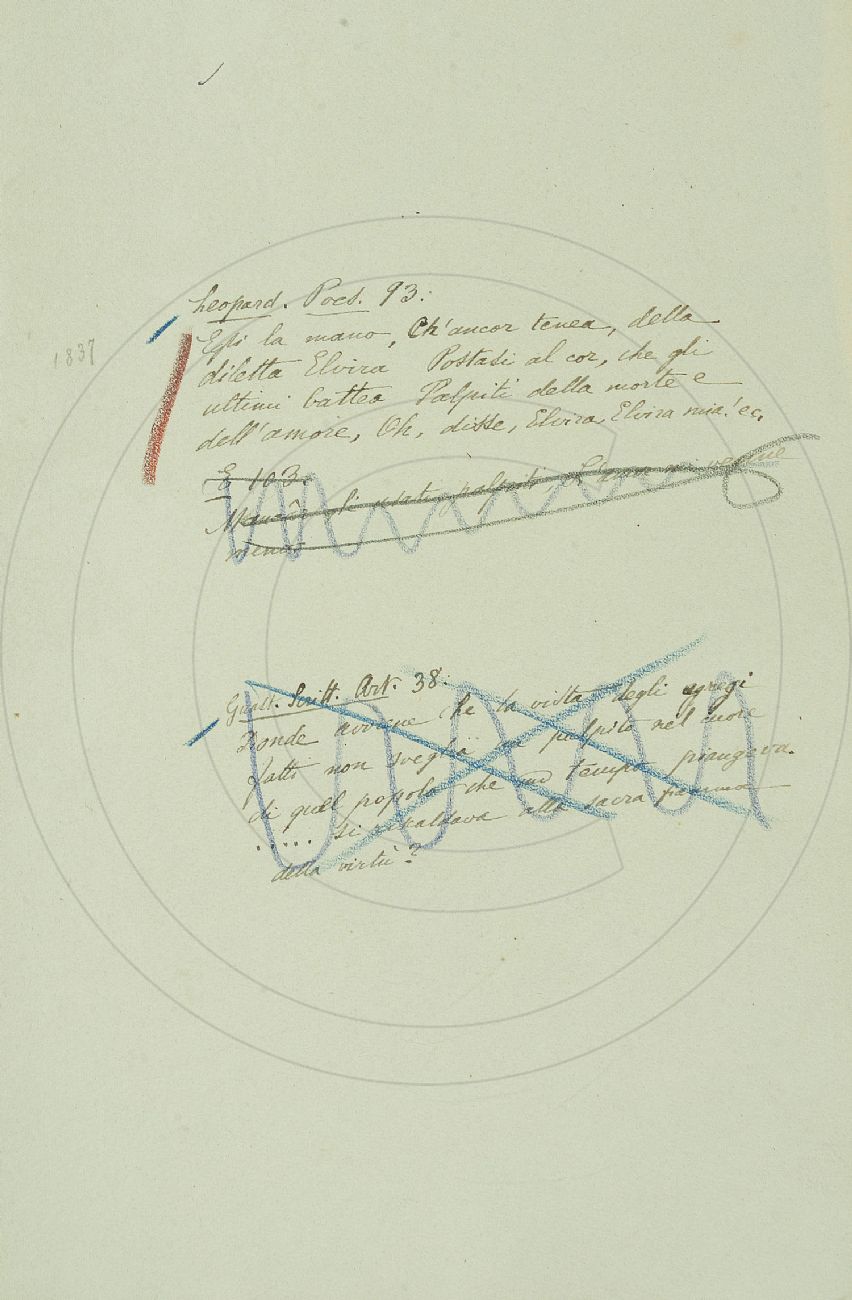 Leopard. Poes. 93:
Egli la mano, Ch'ancor tenea, della
diletta Elvira Postasi al cor, che gli
ultimi battea Palpiti della morte e
dell'amore, Oh, disse, Elvira, Elvira mia! ec.
1837
E 103.
Mancâr gli usati palpiti, L'amor mi venne
meno.
Gualt. Scritt. Art. 38.
Donde avviene che la vista degli egregi
fatti non sveglia un palpito nel cuore
di quel popolo che un tempo piangeva.
..... si riscaldava alla sacra fiamma
della virtù?